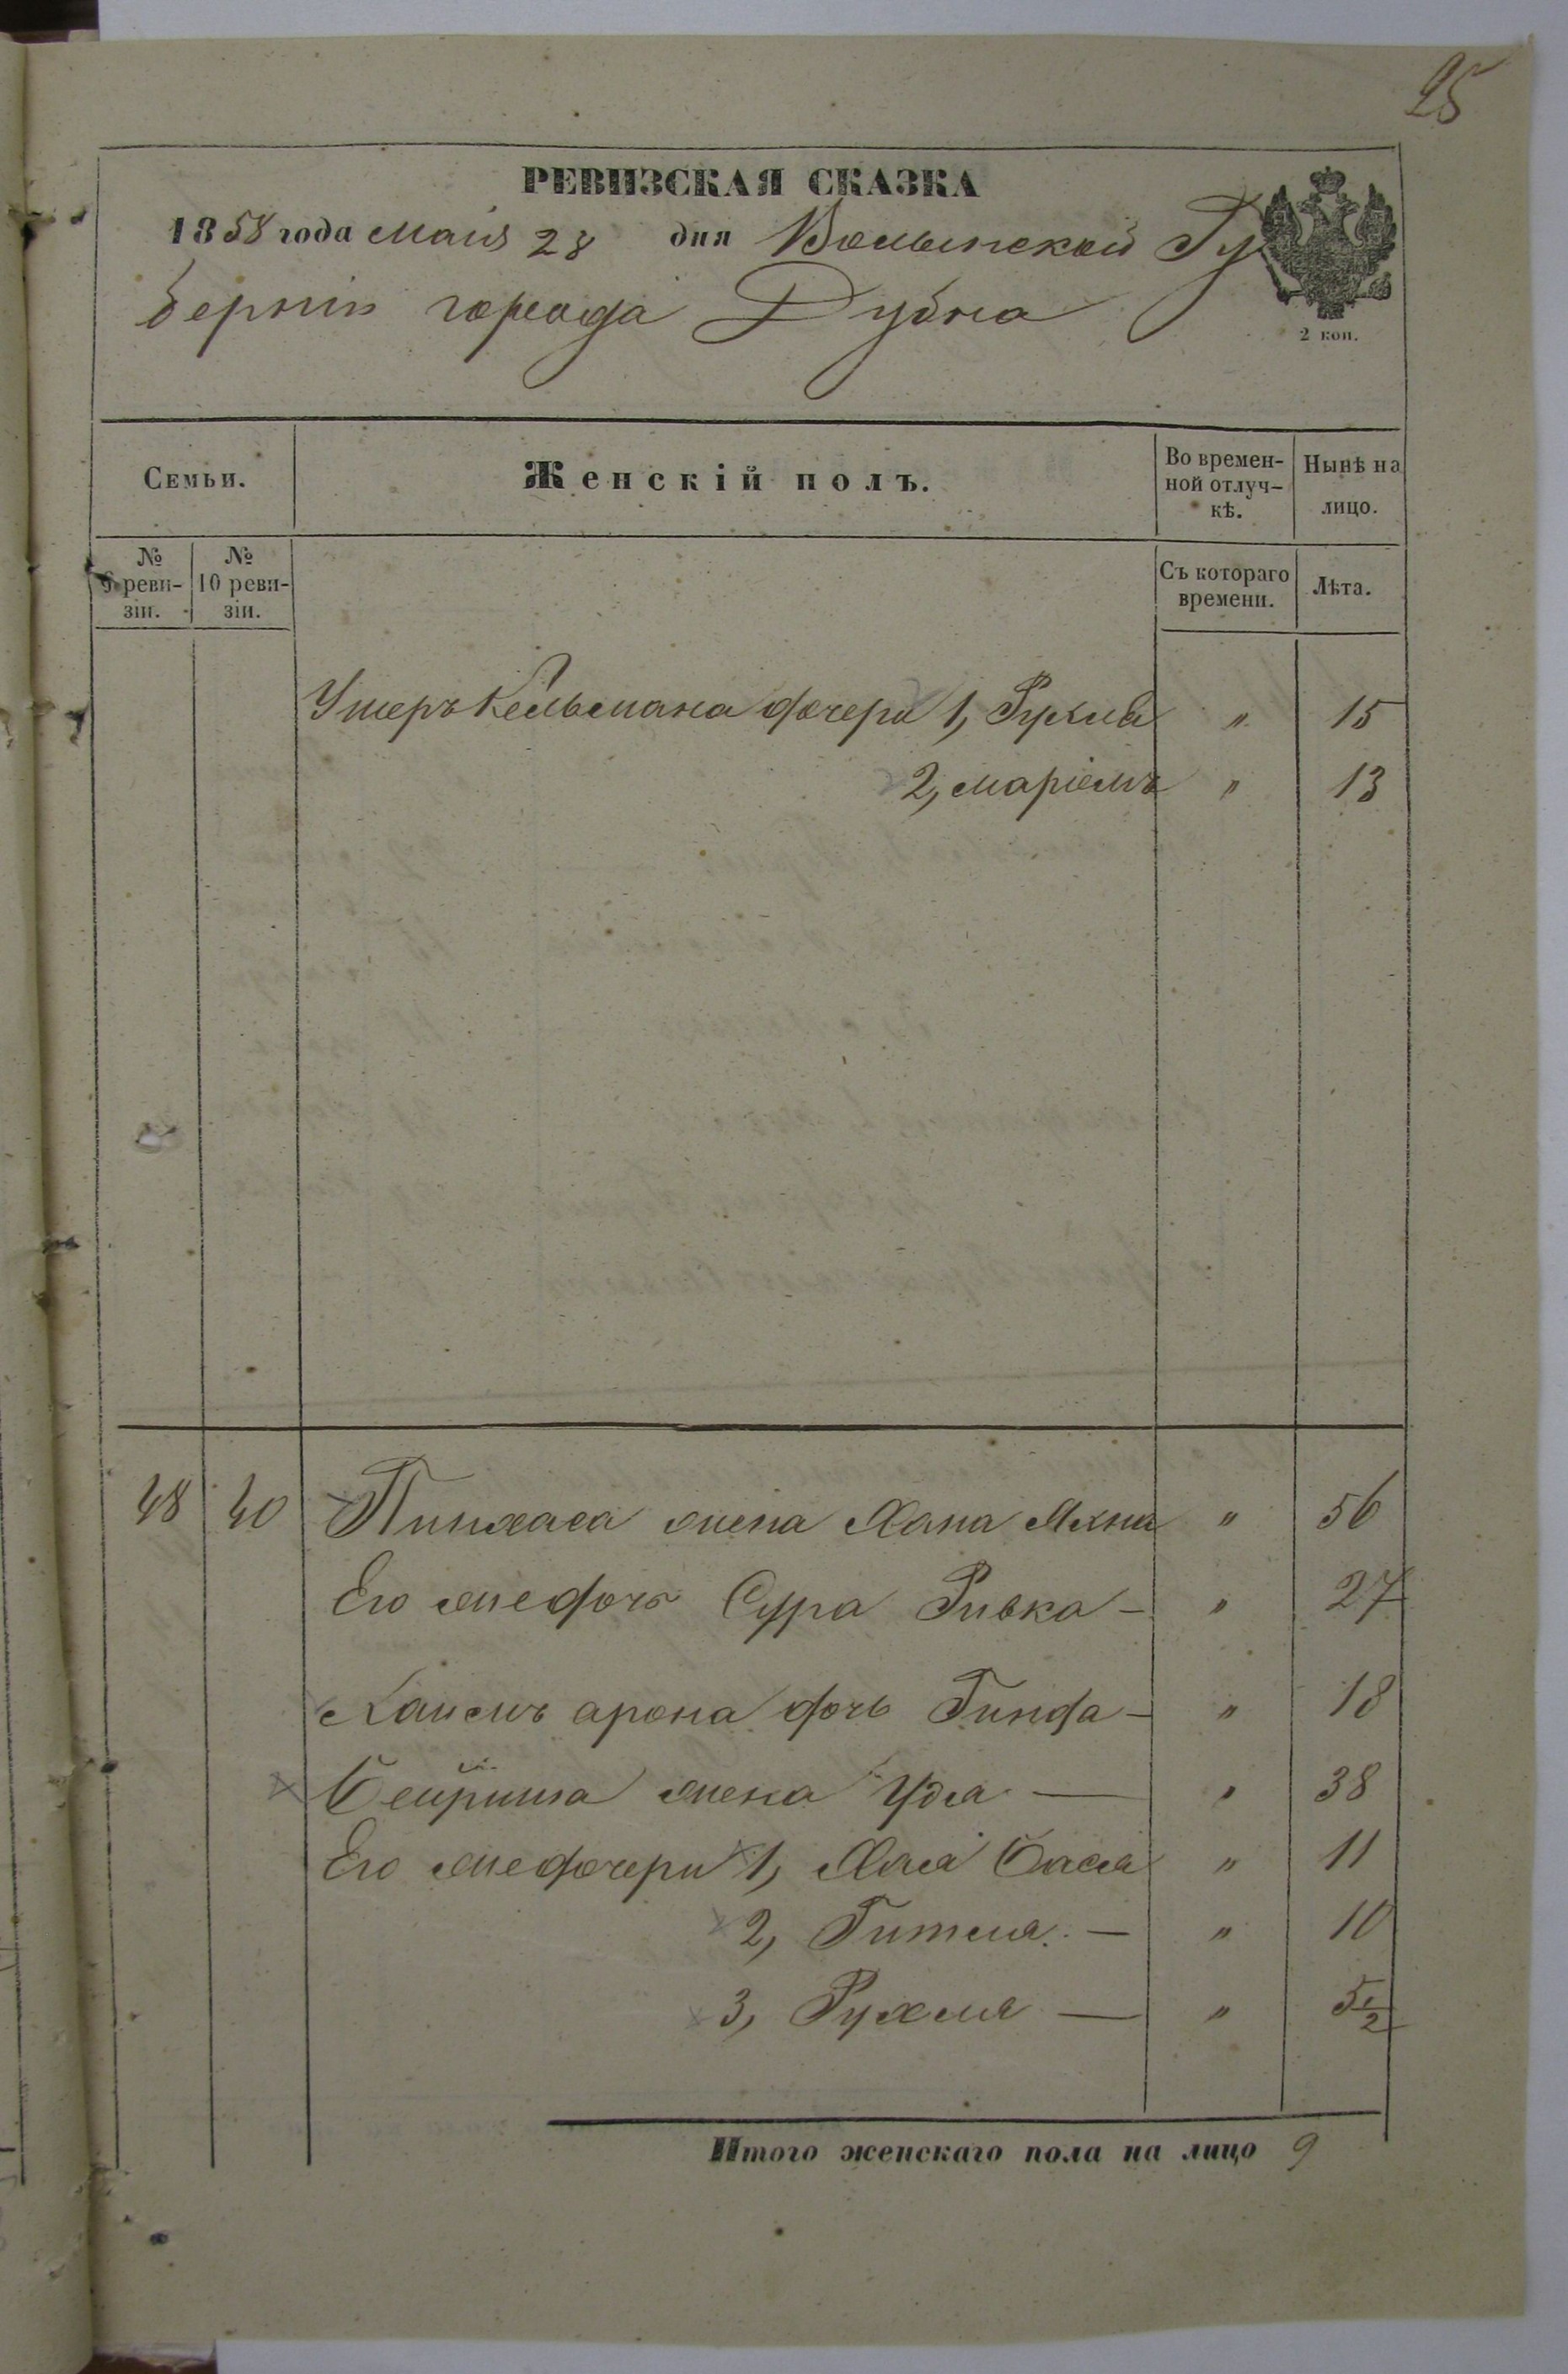 25
РЕВИЗСКАЯ СКАЗКА
1858 года маія 28 дня Волынской Гу
берніи города Дубна
2 коп.
Семьи.
Женскій полъ.
Во времен-
ной отлуч-
кѣ.
Нынѣ на
лицо.
№
9 реви-
зіи.
№
10 реви-
зіи.
Съ котораго
времени.
Лѣта.
Ушеръ Кельмана дочери 1, Рухля " 15
2, Маріемъ " 13
48 40 Пинхаса жена Хана Яхна " 56
Его же дочь Сура Ривка — " 27
Хаимъ арона дочь Гинда — " 18
Бейриша жена Удя — " 38
Его же дочери 1, Хая Бася " 11
2, Гитля — " 10
3, Рухля — " 5 1/2
Итого женскаго пола на лицо 9